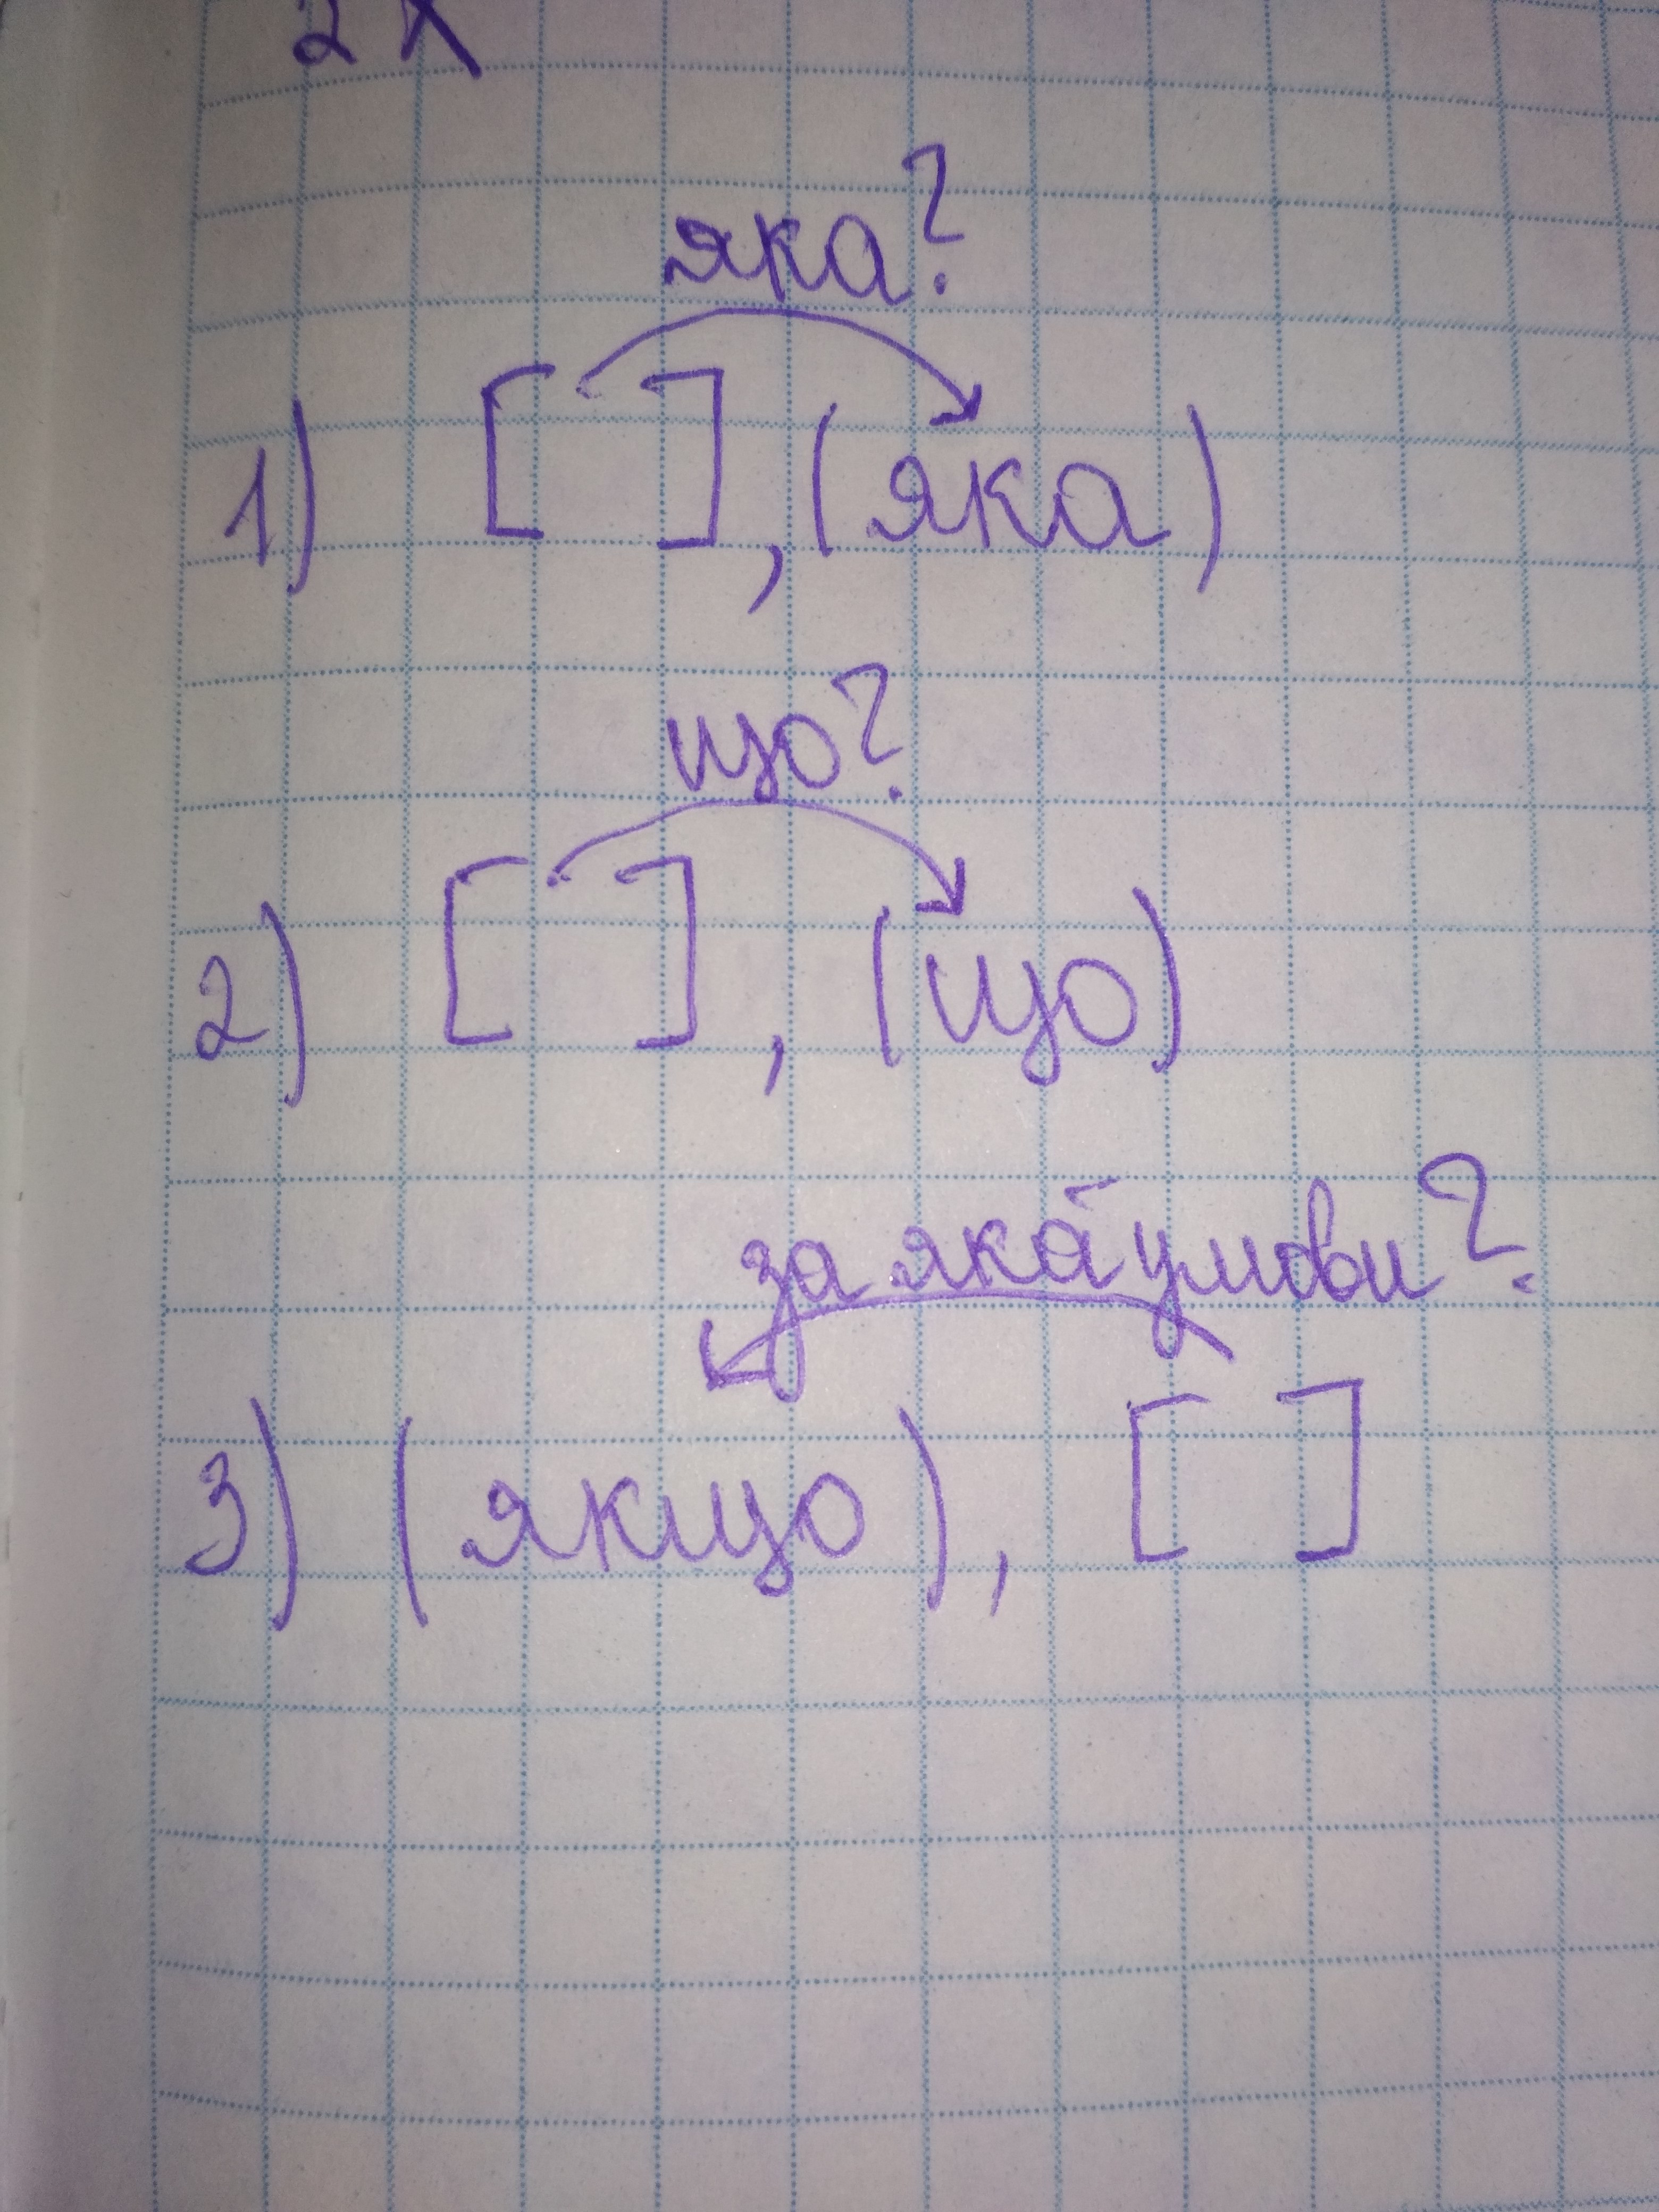 яка?
1) [ ], (яка)
що?
2) [ ], (що)
за яка умови?
3) (якщо), [ ]